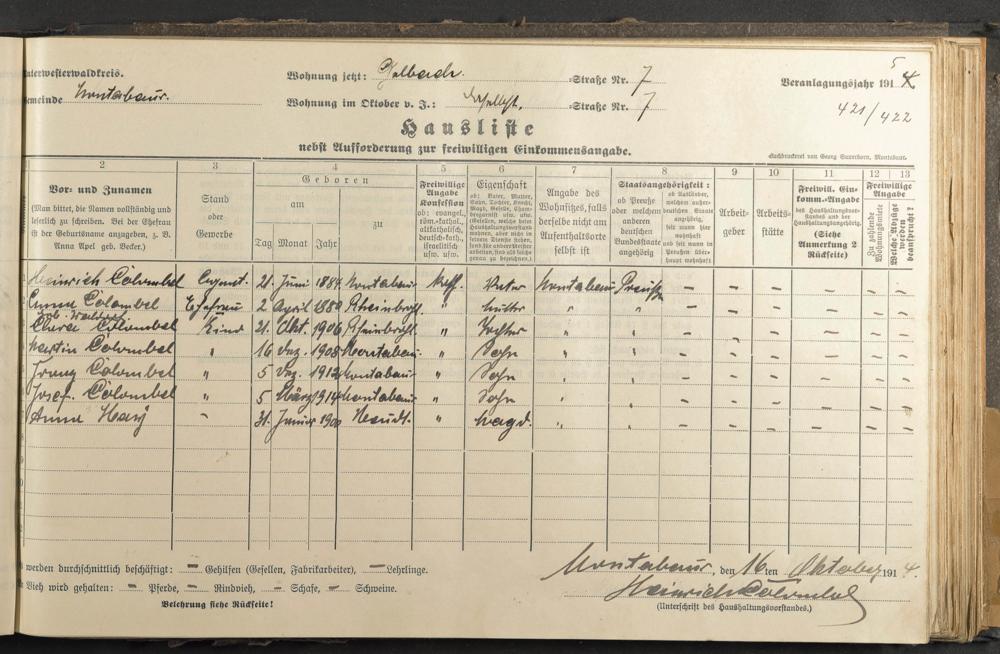 nterwesterwaldkreis.
Wohnung jetzt: Gelbach. =Straße Nr. 7
Veranlagungsjahr 191 5
emeinde Montabaur.
Wohnung im Oktober v. J.: daselbst. =Straße Nr. 7
421/422
Hausliste
nebst Aufforderung zur freiwilligen Einkommensangabe.
Buchdruckerei von Georg Sauerborn, Montabaur.
2 3 4 5 6 7 8 9 10 11 12 13
Vor= und Zunamen
(Man bittet, die Namen vollständig und
leserlich zu schreiben. Bei der Ehefrau
ist der Geburtsname anzugeben, z. B.
Anna Apel geb. Becker.)
Stand
oder
Gewerbe
Geboren
am
zu
Tag Monat Jahr
Freiwillige
Angabe
Konfession
ob: evangel.,
röm.=kathol.,
altkatholisch,
deutsch=kath.,
israelitisch
usw. usw.
Eigenschaft
ob: Vater, Mutter,
Sohn, Tochter, Knecht,
Magd, Geselle, Cham=
bregarnist usw. usw.
Angabe des
Wohnsitzes, falls
derselbe nicht am
Aufenthaltsorte
selbst ist
Staatsangehörigkeit:
ob Preuße
oder welchem
anderen
deutschen
Bundesstaate
angehörig
ob Ausländer,
welchem außer=
deutschen Staate
angehörig,
seit wann hier
wohnhaft
und seit wann in
Preußen über=
haupt wohnhaft
Arbeit=
geber
Arbeits=
stätte
Freiwill. Ein=
komm.=Angabe
des Haushaltungsvor=
standes und der
Haushaltungsangehörig.
(Siehe
Anmerkung 2
Rückseite)
Freiwillige
Angabe
Zu zahlende
Wohnungsmiete
Welche Abzüge
werden
beansprucht?
Heinrich Colombel 21. Juni 1884 Montabaur Kath. Vater Montabaur Preuße – – – – – –
Emma Colombel Ehefrau 2 April 1882 " Mutter " " – – – – –
Clara Colombel Kind 21. Okt. 1906 " Tochter " " – – – – –
Martin Colombel " 16 Dez. 1908 Montabaur " Sohn " " – – – – –
Franz Colombel " 5 Dez. 1912 Montabaur " Sohn " " – – – – –
Josef Colombel " 5 März 1914 Montabaur " Sohn " " – – – – –
Anna – 31. Januar 1900 " Magd. " " – – – – –
werden durchschnittlich beschäftigt: – Gehilfen (Gesellen, Fabrikarbeiter), – Lehrlinge.
Vieh wird gehalten: – Pferde, – Rindvieh, – Schafe – Schweine.
Belehrung siehe Rückseite!
Montabaur, den 16ten Oktober 1914.
Heinrich Colombel
(Unterschrift des Haushaltungsvorstandes.)